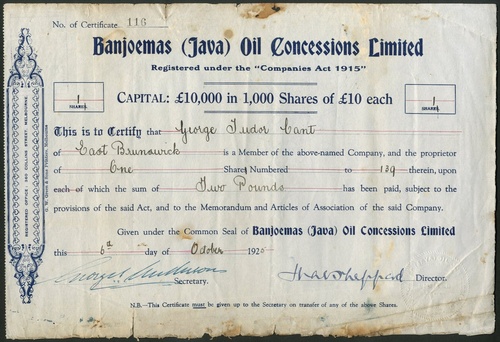 No. of Certificate 116
Banjoemas (Java) Oil Concessions Limited
Registered under the "Companies Act 1915"
1
SHARES.
CAPITAL: £10,000 in 1,000 Shares of £10 each
1
SHARES.
This is to Certify that George Tudor Cant
of East Brunswick is a Member of the above-named Company, and the proprietor
of One Share Numbered to 139 therein, upon
each of which the sum of Two Pounds has been paid, subject to the
provisions of the said Act, and to the Memorandum and Articles of Association of the said Company.
Given under the Common Seal of Banjoemas (Java) Oil Concessions Limited
this 6th day of October 192
Secretary.
Sheppard Director.
N.B.—This Certificate must be given up to the Secretary on transfer of any of the above Shares.
REGISTERED OFFICE: COLLINS STREET, MELBOURNE